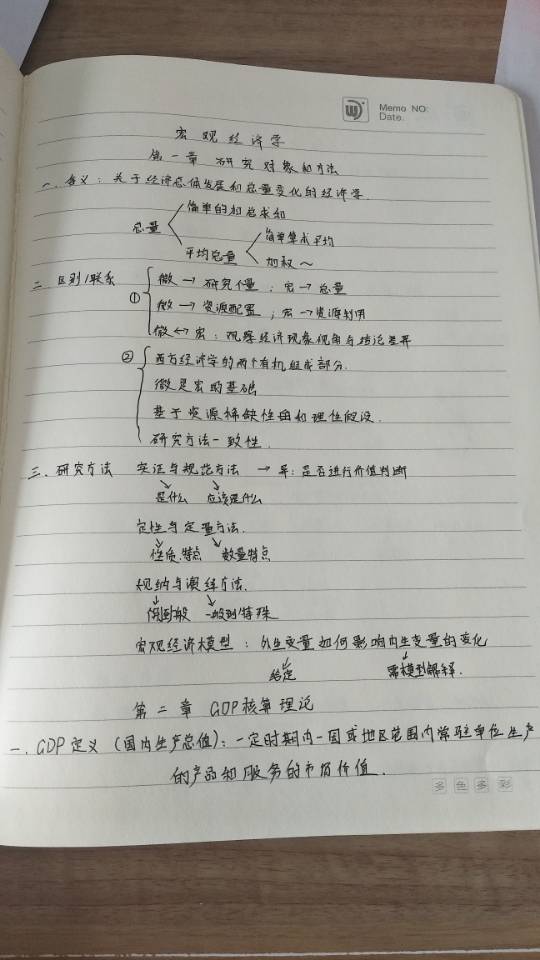 Memo NO:
Date.
宏观经济学
第一章 研究对象和方法
一、含义：关于经济总体发展和总量变化的经济学.
简单的加总求和
总量
简单算术平均
平均总量
加权～
二、区别/联系
微→研究个量；宏→总量
①
微→资源配置；宏→资源利用
微↔宏：观察经济现象视角与结论差异
② 西方经济学的两个有机组成部分.
微是宏的基础
基于资源稀缺性和理性假设.
研究方法一致性.
三、研究方法 实证与规范方法 → 异：是否进行价值判断
是什么 应该是什么
定性与定量方法.
性质.特点 数量特点
归纳与演绎方法.
个别到一般 一般到特殊
宏观经济模型：外生变量如何影响内生变量的变化
给定 需模型解释.
第二章 GDP核算理论
一、GDP定义（国内生产总值）：一定时期内一国或地区范围内常驻单位生产
的产品和服务的市场价值.
多色多彩